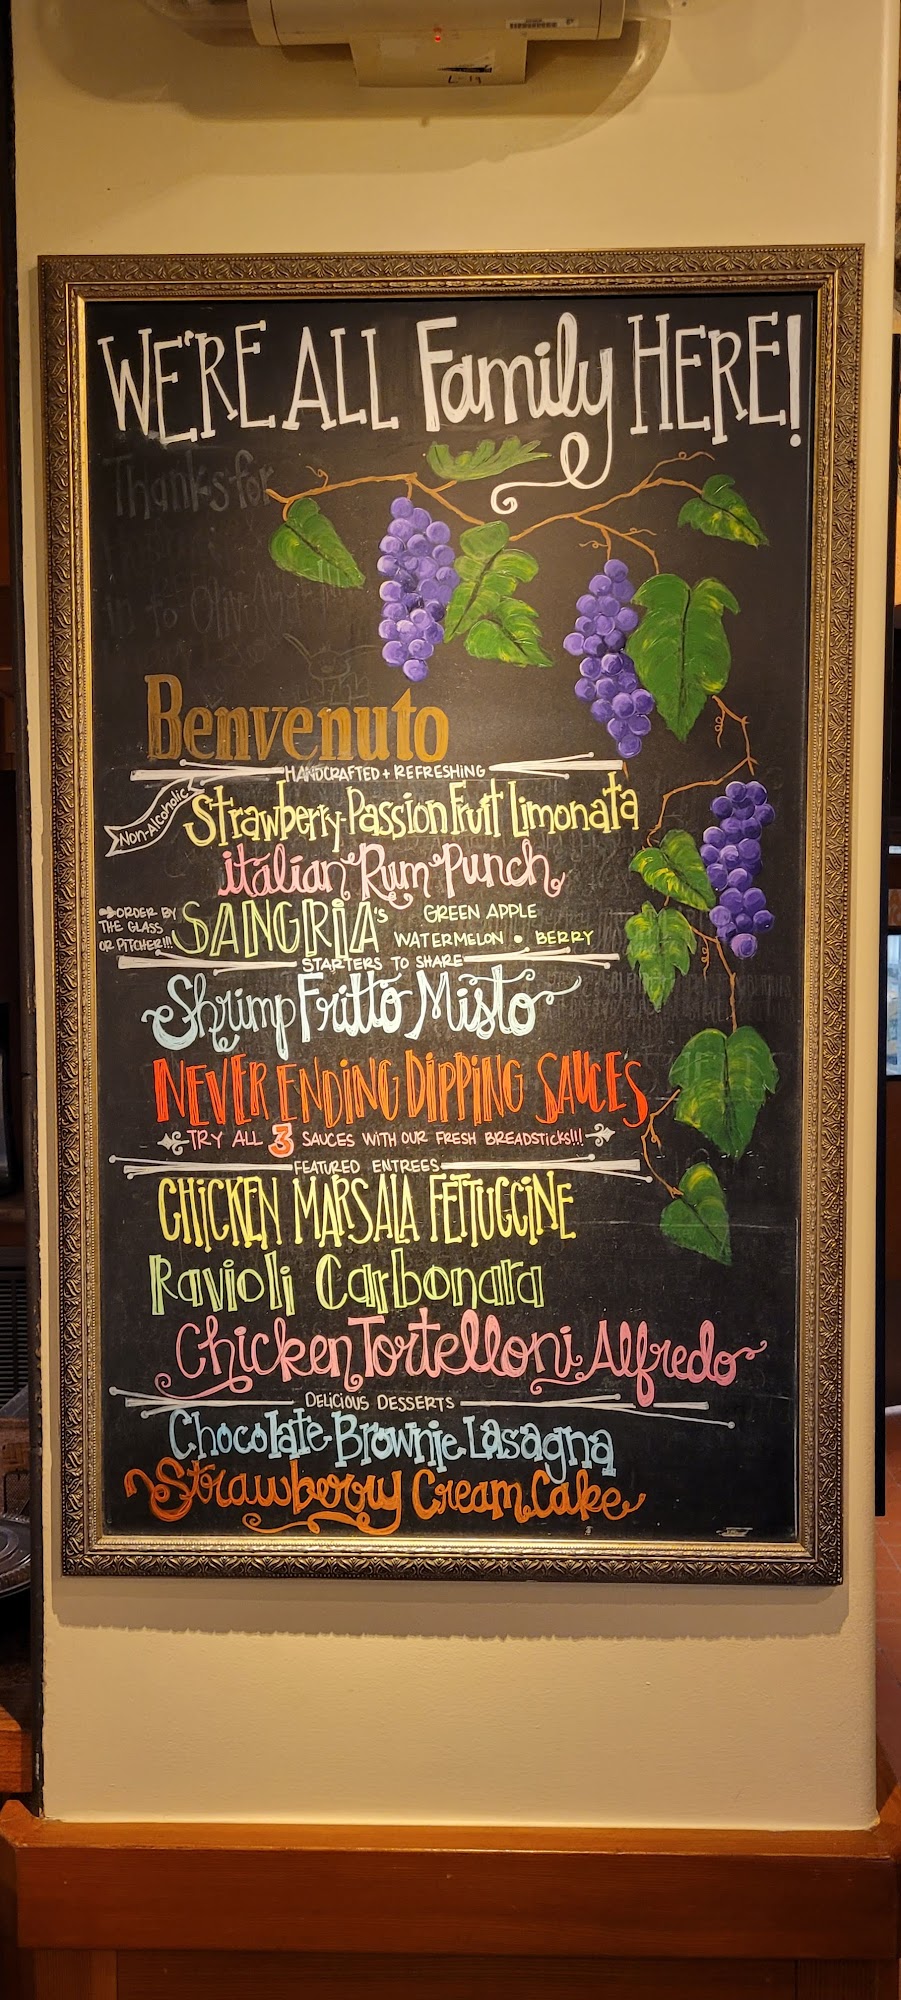 WE'RE ALL Family HERE!
Thanks for
in to Olive
Benvenuto
HANDCRAFTED + REFRESHING
Non-Alcoholic
Strawberry-Passion Fruit Limonata
italian Rum Punch
ORDER BY
THE GLASS
OR PITCHER!!!
SANGRIA's
GREEN APPLE
WATERMELON • BERRY
STARTERS TO SHARE
Shrimp Fritto Misto
NEVER ENDING DIPPING SAUCES
TRY ALL 3 SAUCES WITH OUR FRESH BREADSTICKS!!!
FEATURED ENTREES
CHiCKEN MARSALA FETTUCCINE
Ravioli Carbonara
Chicken Tortelloni Alfredo
DELICIOUS DESSERTS
Chocolate Brownie Lasagna
Strawberry Cream Cake